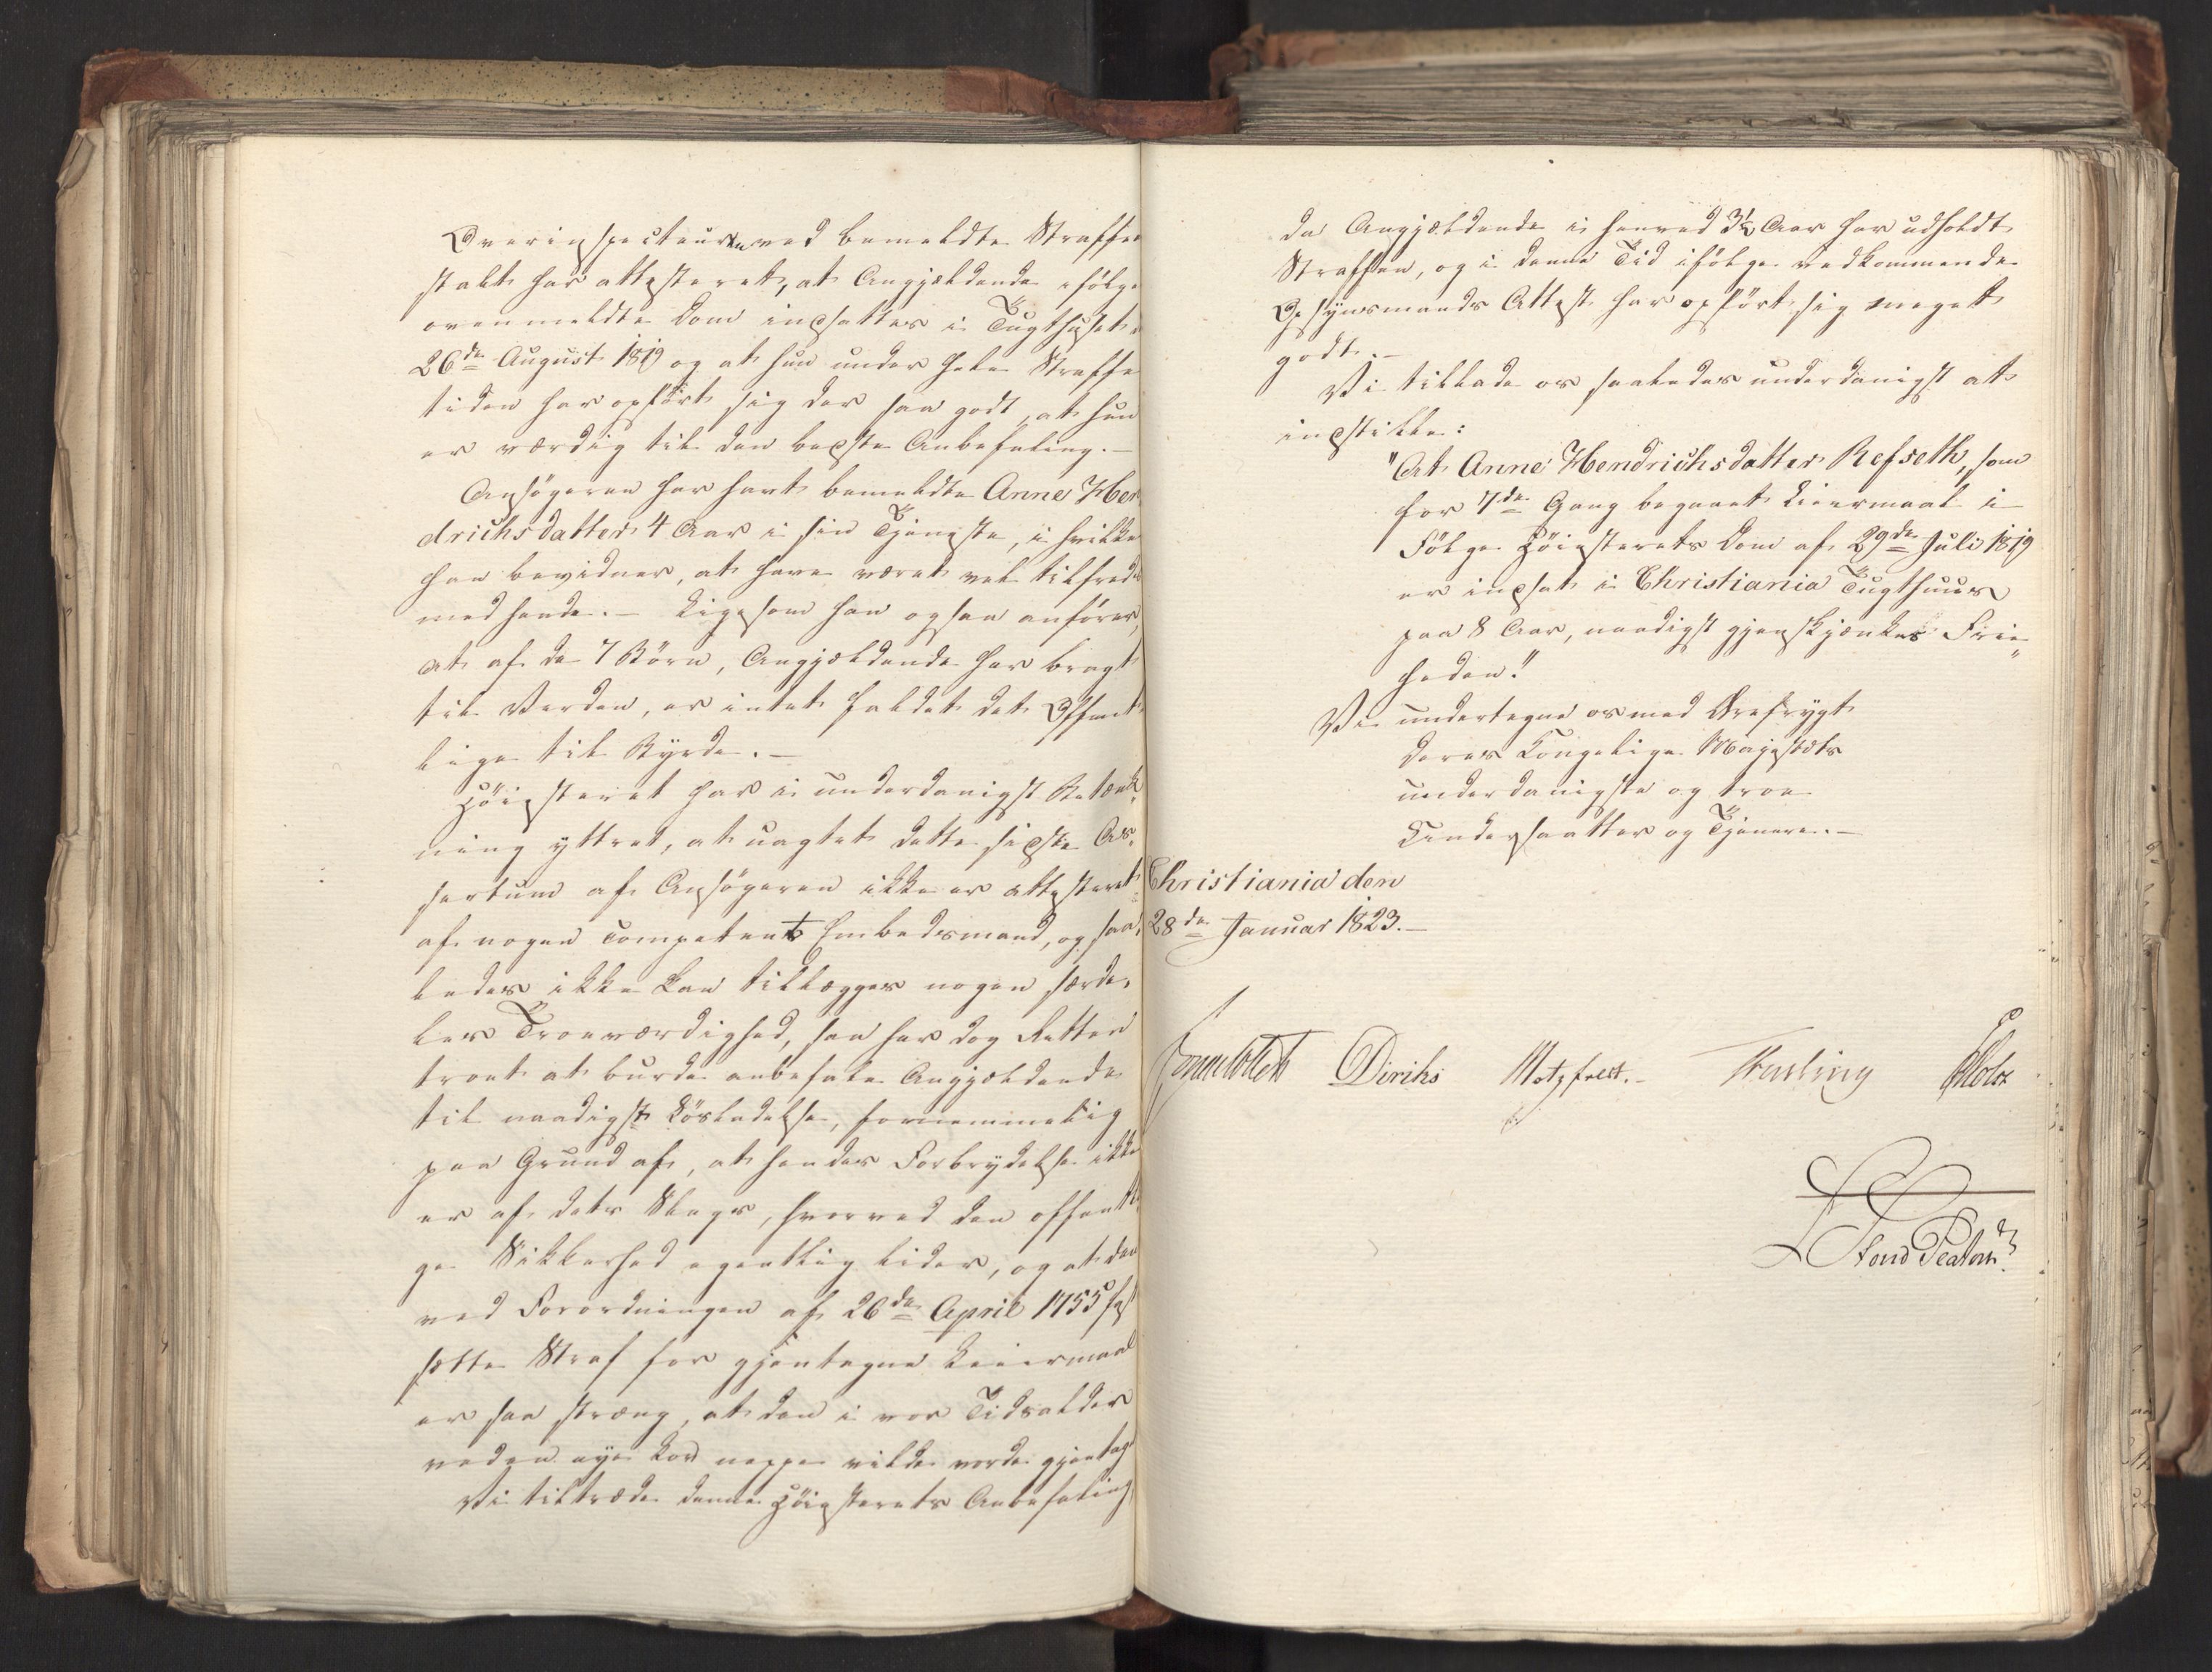 Overinspecteuren ved bemeldte Straffean
stalt har attesteret, at Angjeldende ifölge
ovenmeldte Dom indsattes i Tugthuset
26de August 1819 og at hun under hele Straffe
tiden har opfört sig der saa godt, at hun
er værdig til den bedste Anbefaling.—
Ansögeren har havt bemeldte Anne Hen
drichsdatter 4 Aar i sin Tjeneste, i hvilke
han bevidner, at have været vel tilfreds
med hende.— Ligesom han ogsaa anförer,
at af de 7 Börn, Angjældende har bragt
til Verden, er intet faldet det Offent
lige til Byrde.—
Höiesteret har i underdanigst Betænk
ning yttret, at uagtet dette sidste As,
sertum af Ansögeren ikke er attesteret
af nogen competent Embedsmand, og saa,
ledes ikke kan tillægges nogen særde,
les Troeværdighed, saa har dog Retten
troet at burde anbefale Angjældende
til naadigst Lösladelse, fornemmelig
paa Grund af, at hendes Forbrydelse ikke
er af dets Slags, hvorved den offentli
ge Sikkerhed egentlig lider, og at den
ved Forordningen af 26de April 1755 fast
satte Straf for gjentagne Leiermaal
er saa streng, at den i vor Tidsalder
ved en nye Lov neppe vilde vorde gjentaget
Vi tiltræde denne Höiesterets Anbefaling,
da Angjældende i henved 3½ Aar har udholdt
Straffen, og i denne Tid ifölge vedkommende
Opsynsmands Attest har opfört sig meget
godt.—
Vi tillade os saaledes underdanigst at
indstille:
"At Anne Hendrichsdatter Refseth, som
for 7de Gang begaaet Leiermaal i
Fölge Höiesterets Dom af 29de Juli 1819
er indsat i Christiania Tugthuus
paa 8 Aar, naadigst gjenskjænkes Frie„
heden."
Vi undertegne os med Ærefrygt
Deres Kongelige Majestæts
underdanigste og troe
Undersaatter og Tjenere.—
Christiania den
28de Januar 1823.—
Sommerhielm Diriks Motzfeldt.— Fasting Holst